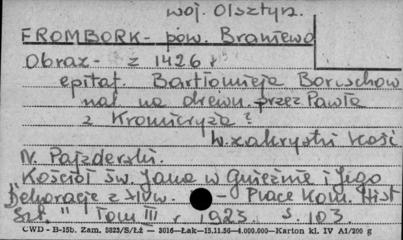 woj. Olsztyn.
FROMBORK - pow. Braniewo
Obraz - z 1426 r
epitaf. Bartłomieja Boruschow
mal na drewn. przez Pawła
z Kromieryża ?
w zakrystii kość
N. Pajzderski.
Kościół św. Jana w Gnieźnie i jego
Dekoracje z XIV w. - Prace Kom. Hist
Szt. " Tom III r 1923. s. 103.
CWD - B-15b. Zam. 5823/S/Łż — 3016—Łak—15.11.56—4.000.000—Karton kl. IV A1/200 g